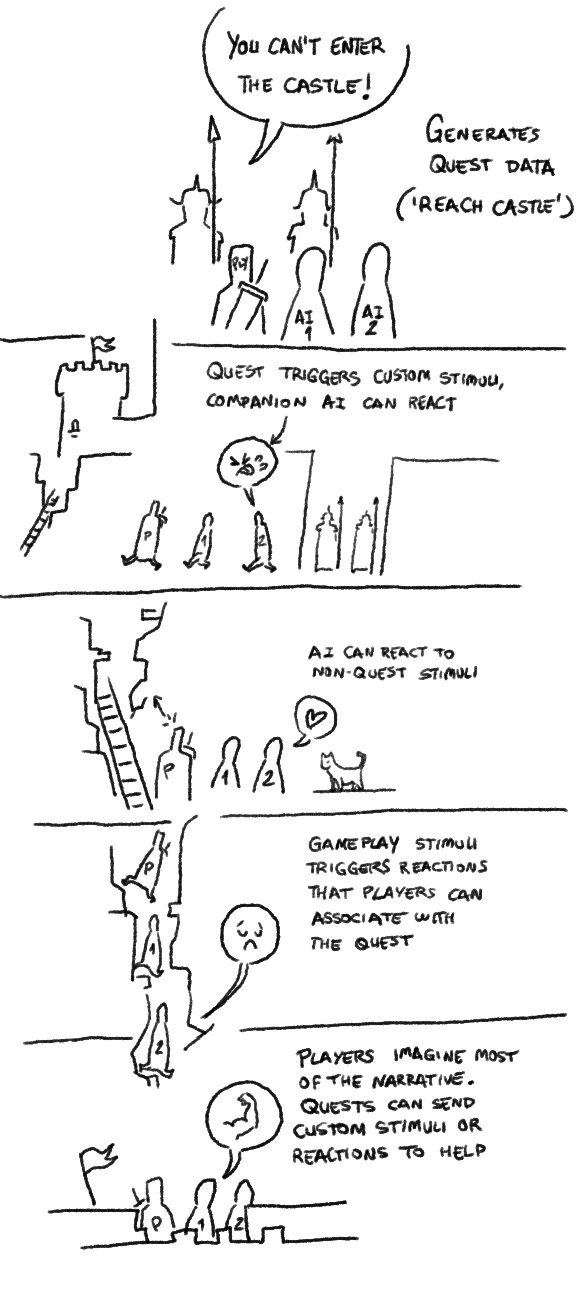 YOU CAN'T ENTER
THE CASTLE!
GENERATES
QUEST DATA
('REACH CASTLE')
PLY
AI
1
AI
2
QUEST TRIGGERS CUSTOM STIMULI,
COMPANION AI CAN REACT
P
1
2
AI CAN REACT TO
NON-QUEST STIMULI
P
1
2
GAMEPLAY STIMULI
TRIGGERS REACTIONS
THAT PLAYERS CAN
ASSOCIATE WITH
THE QUEST
P
1
2
PLAYERS IMAGINE MOST
OF THE NARRATIVE.
QUESTS CAN SEND
CUSTOM STIMULI OR
REACTIONS TO HELP
P
1
2